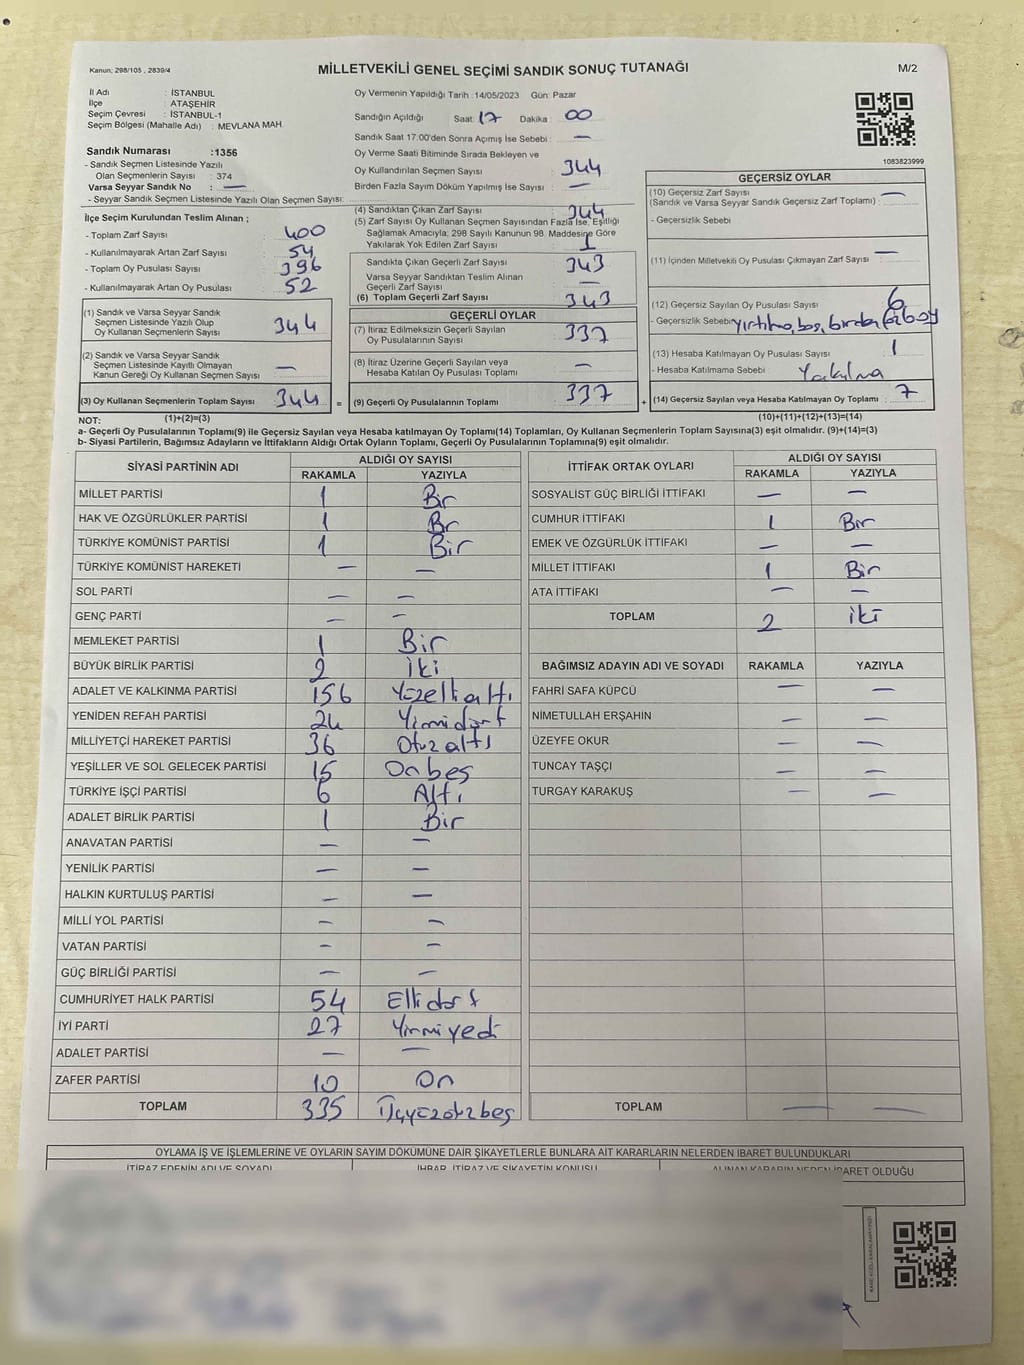 Kanun; 298/105 , 2839/4
MİLLETVEKİLİ GENEL SEÇİMİ SANDIK SONUÇ TUTANAĞI
M/2
İl Adı : İSTANBUL
İlçe : ATAŞEHİR
Seçim Çevresi : İSTANBUL-1
Seçim Bölgesi (Mahalle Adı) : MEVLANA MAH.
Sandık Numarası :1356
- Sandık Seçmen Listesinde Yazılı
Olan Seçmenlerin Sayısı : 374
Varsa Seyyar Sandık No : —
- Seyyar Sandık Seçmen Listesinde Yazılı Olan Seçmen Sayısı:
Oy Vermenin Yapıldığı Tarih :14/05/2023 Gün: Pazar
Sandığın Açıldığı Saat: 17 Dakika : 00
Sandık Saat 17:00'den Sonra Açımış İse Sebebi : —
Oy Verme Saati Bitiminde Sırada Bekleyen ve
Oy Kullandırılan Seçmen Sayısı : 344
Birden Fazla Sayım Döküm Yapılmış İse Sayısı : —
1083823999
İlçe Seçim Kurulundan Teslim Alınan ;
- Toplam Zarf Sayısı : 400
- Kullanılmayarak Artan Zarf Sayısı : 54
- Toplam Oy Pusulası Sayısı : 396
- Kullanılmayarak Artan Oy Pusulası : 52
(1) Sandık ve Varsa Seyyar Sandık
Seçmen Listesinde Yazılı Olup
Oy Kullanan Seçmenlerin Sayısı 344
(2) Sandık ve Varsa Seyyar Sandık
Seçmen Listesinde Kayıtlı Olmayan
Kanun Gereği Oy Kullanan Seçmen Sayısı —
(3) Oy Kullanan Seçmenlerin Toplam Sayısı 344 =
(4) Sandıktan Çıkan Zarf Sayısı : 344
(5) Zarf Sayısı Oy Kullanan Seçmen Sayısından Fazla İse, Eşitliği
Sağlamak Amacıyla; 298 Sayılı Kanunun 98. Maddesine Göre
Yakılarak Yok Edilen Zarf Sayısı : 1
Sandıkta Çıkan Geçerli Zarf Sayısı 343
Varsa Seyyar Sandıktan Teslim Alınan
Geçerli Zarf Sayısı —
(6) Toplam Geçerli Zarf Sayısı 343
GEÇERLİ OYLAR
(7) İtiraz Edilmeksizin Geçerli Sayılan
Oy Pusulalarının Sayısı : 337
(8) İtiraz Üzerine Geçerli Sayılan veya
Hesaba Katılan Oy Pusulası Toplamı : —
(9) Geçerli Oy Pusulalarının Toplamı : 337 +
GEÇERSİZ OYLAR
(10) Geçersiz Zarf Sayısı —
(Sandık ve Varsa Seyyar Sandık Geçersiz Zarf Toplamı) :
- Geçersizlik Sebebi
(11) İçinden Milletvekili Oy Pusulası Çıkmayan Zarf Sayısı : —
(12) Geçersiz Sayılan Oy Pusulası Sayısı : 6
- Geçersizlik Sebebi yırtılma, boş, birden
(13) Hesaba Katılmayan Oy Pusulası Sayısı 1
- Hesaba Katılmama Sebebi Yakılma
(14) Geçersiz Sayılan veya Hesaba Katılmayan Oy Toplamı : 7
NOT: (1)+(2)=(3) (10)+(11)+(12)+(13)=(14)
a- Geçerli Oy Pusulalarının Toplamı(9) ile Geçersiz Sayılan veya Hesaba katılmayan Oy Toplamı(14) Toplamları, Oy Kullanan Seçmenlerin Toplam Sayısına(3) eşit olmalıdır. (9)+(14)=(3)
b- Siyasi Partilerin, Bağımsız Adayların ve İttifakların Aldığı Ortak Oyların Toplamı, Geçerli Oy Pusulalarının Toplamına(9) eşit olmalıdır.
SİYASİ PARTİNİN ADI ALDIĞI OY SAYISI
RAKAMLA YAZIYLA
MİLLET PARTİSİ 1 Bir
HAK VE ÖZGÜRLÜKLER PARTİSİ 1 Br
TÜRKİYE KOMÜNİST PARTİSİ 1 Bir
TÜRKİYE KOMÜNİST HAREKETİ — —
SOL PARTİ — —
GENÇ PARTİ — —
MEMLEKET PARTİSİ 1 Bir
BÜYÜK BİRLİK PARTİSİ 2 İki
ADALET VE KALKINMA PARTİSİ 156 Yüzellialtı
YENİDEN REFAH PARTİSİ 24 Yirmidört
MİLLİYETÇİ HAREKET PARTİSİ 36 Otuzaltı
YEŞİLLER VE SOL GELECEK PARTİSİ 15 Onbeş
TÜRKİYE İŞÇİ PARTİSİ 6 Altı
ADALET BİRLİK PARTİSİ 1 Bir
ANAVATAN PARTİSİ — —
YENİLİK PARTİSİ — —
HALKIN KURTULUŞ PARTİSİ — —
MİLLİ YOL PARTİSİ — —
VATAN PARTİSİ — —
GÜÇ BİRLİĞİ PARTİSİ — —
CUMHURİYET HALK PARTİSİ 54 Ellidört
İYİ PARTİ 27 Yirmiyedi
ADALET PARTİSİ — —
ZAFER PARTİSİ 10 On
TOPLAM 335 Üçyüzotuzbeş
İTTİFAK ORTAK OYLARI ALDIĞI OY SAYISI
RAKAMLA YAZIYLA
SOSYALİST GÜÇ BİRLİĞİ İTTİFAKI — —
CUMHUR İTTİFAKI 1 Bir
EMEK VE ÖZGÜRLÜK İTTİFAKI — —
MİLLET İTTİFAKI 1 Bir
ATA İTTİFAKI — —
TOPLAM 2 iki
BAĞIMSIZ ADAYIN ADI VE SOYADI RAKAMLA YAZIYLA
FAHRİ SAFA KÜPCÜ — —
NİMETULLAH ERŞAHİN — —
ÜZEYFE OKUR — —
TUNCAY TAŞÇI — —
TURGAY KARAKUŞ — —
TOPLAM — —
OYLAMA İŞ VE İŞLEMLERİNE VE OYLARIN SAYIM DÖKÜMÜNE DAİR ŞİKAYETLERLE BUNLARA AİT KARARLARIN NELERDEN İBARET BULUNDUKLARI
İTİRAZ EDENİN ADI VE SOYADI İHBAR, İTİRAZ VE ŞİKAYETİN KONUSU ALINAN KARARIN NEDEN İBARET OLDUĞU